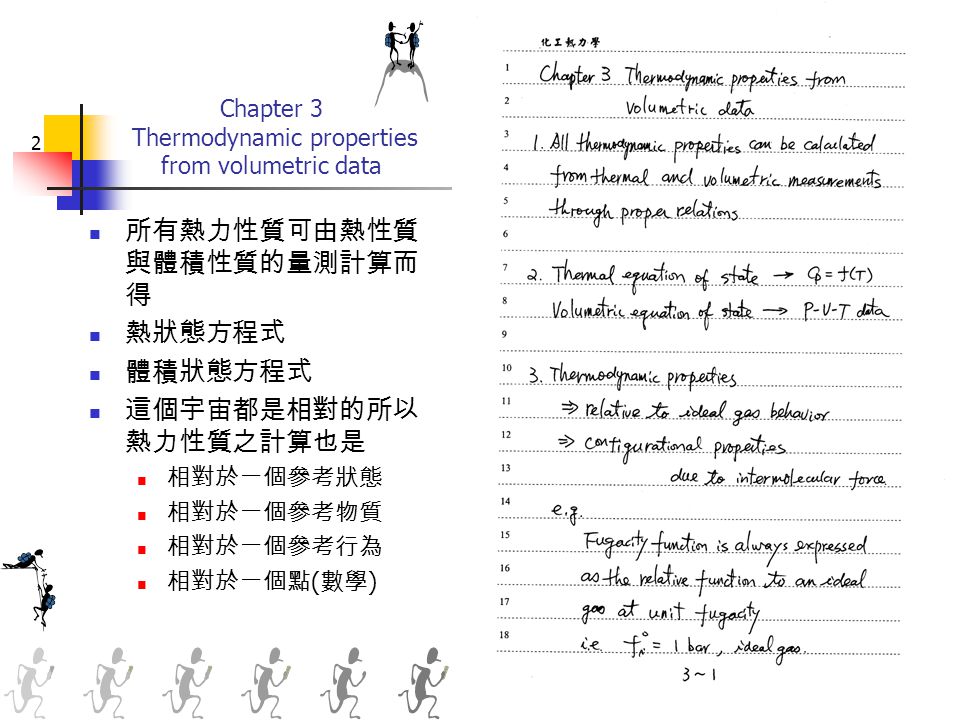 2
Chapter 3
Thermodynamic properties
from volumetric data
所有熱力性質可由熱性質
與體積性質的量測計算而
得
熱狀態方程式
體積狀態方程式
這個宇宙都是相對的所以
熱力性質之計算也是
相對於一個參考狀態
相對於一個參考物質
相對於一個參考行為
相對於一個點(數學)
化工熱力學
1 Chapter 3 Thermodynamic properties from
2 volumetric data
3 1. All thermodynamic properties can be calculated
4 from thermal and volumetric measurements
5 through proper relations
6
7 2. Thermal equation of state → Cp = f(T)
8 Volumetric equation of state → P-V-T data
9
10 3. Thermodynamic properties
11 ⇒ relative to ideal gas behavior
12 ⇒ configurational properties
13 due to intermolecular force
14 e.g.
15 Fugacity function is always expressed
16 as the relative function to an ideal
17 gas at unit fugacity
18 i.e. = 1 bar, ideal gas.
3~1